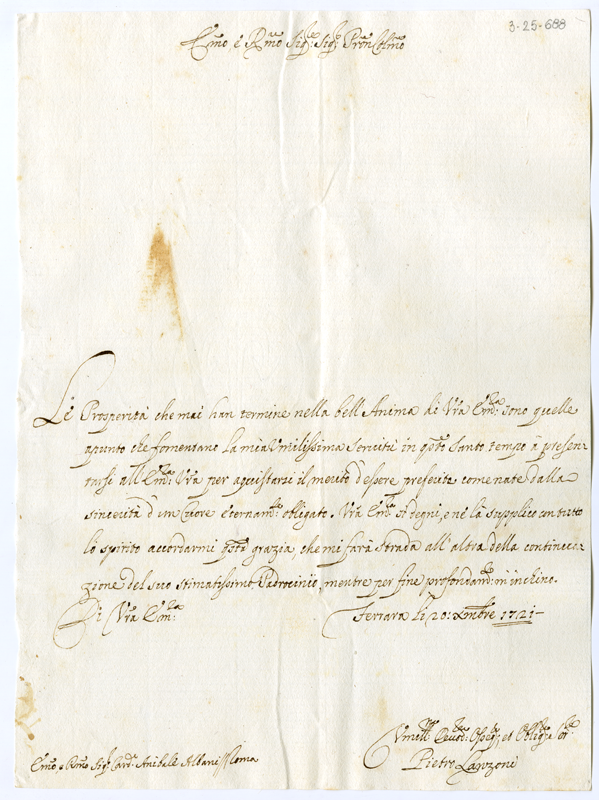 3-25-688
Emo e Rmo Sigre: Sigr: Pron Colmo
Le Prosperità che mai han termine nella bell'Anima di Vra Emza: sono quelle
apunto che fomentano la mia Umilissima servitù in qsto santo tempo à presen
tarsi all'Emza: Vra per acquistarsi il merito d'essere preferite come nate dalla
sincerità d'un Cuore eternamte: obligato. Vra Emza si degni, e nè là supplico con tutto
lo spirito accordarmi qsta grazia, che mi farà strada all'altra della continoua-
zione del suo stimatissimo Padrocinio, mentre per fine profondamte: m'inchino.
Di Vra Emza:
Ferrara li 20: Xmbre 1721-
Umilmo Devmo: Ossqmo; et Obligmo: Sre:
Emo e Rmo Sigr Card: Anibale Albani // Roma
Pietro Lanzoni